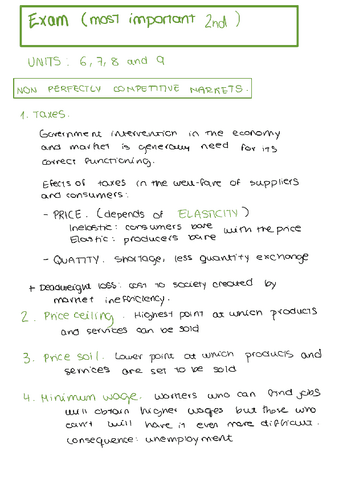 Exam (most important 2nd)
UNITS: 6, 7, 8 and 9
NON PERFECTLY COMPETITIVE MARKETS.
1. Taxes.
Government intervention in the economy
and market is generally need for its
correct functioning.
Efects of taxes in the well-fare of suppliers
and consumers:
- PRICE. (depends of ELASTICITY)
Inelastic: consumers bare
Elastic: producers bare
with the price
- QUATITY. Shortage, less quantity exchange
+ Deadweight loss: cost to society created by
market inefficiency.
2. Price ceiling. Highest point at which products
and services can be sold
3. Price soil. Lower point at which products and
services are set to be sold
4. Minimum wage. Workers who can find jobs
will obtain higher wages but those who
can't will have it even more difficult.
consequence: unemployment